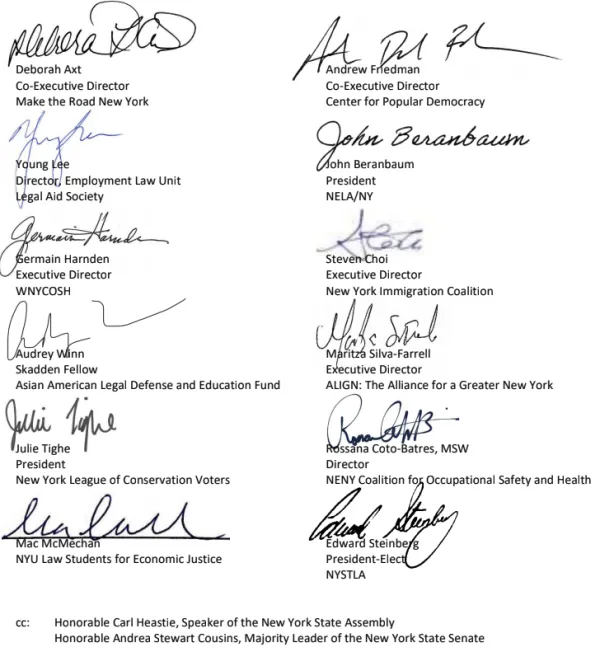 Deborah Axt
Co-Executive Director
Make the Road New York
Andrew Friedman
Co-Executive Director
Center for Popular Democracy
Young Lee
Director, Employment Law Unit
Legal Aid Society
John Beranbaum
John Beranbaum
President
NELA/NY
Germain Harnden
Germain Harnden
Executive Director
WNYCOSH
Steven Choi
Executive Director
New York Immigration Coalition
Audrey Winn
Skadden Fellow
Asian American Legal Defense and Education Fund
Maritza Silva-Farrell
Executive Director
ALIGN: The Alliance for a Greater New York
Julie Tighe
Julie Tighe
President
New York League of Conservation Voters
Rossana Coto-Batres, MSW
Director
NENY Coalition for Occupational Safety and Health
Mac McMechan
NYU Law Students for Economic Justice
Edward Steinberg
Edward Steinberg
President-Elect
NYSTLA
cc: Honorable Carl Heastie, Speaker of the New York State Assembly
Honorable Andrea Stewart Cousins, Majority Leader of the New York State Senate